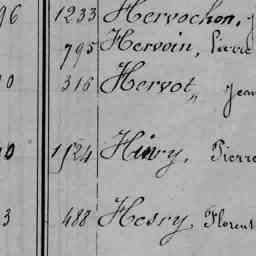 96 1233 Hervochon, J
795 Hervoin, Pierre
0 316 Hervot, Jean
0 1524 Hiury, Pierre
3 488 Hesry, Florent